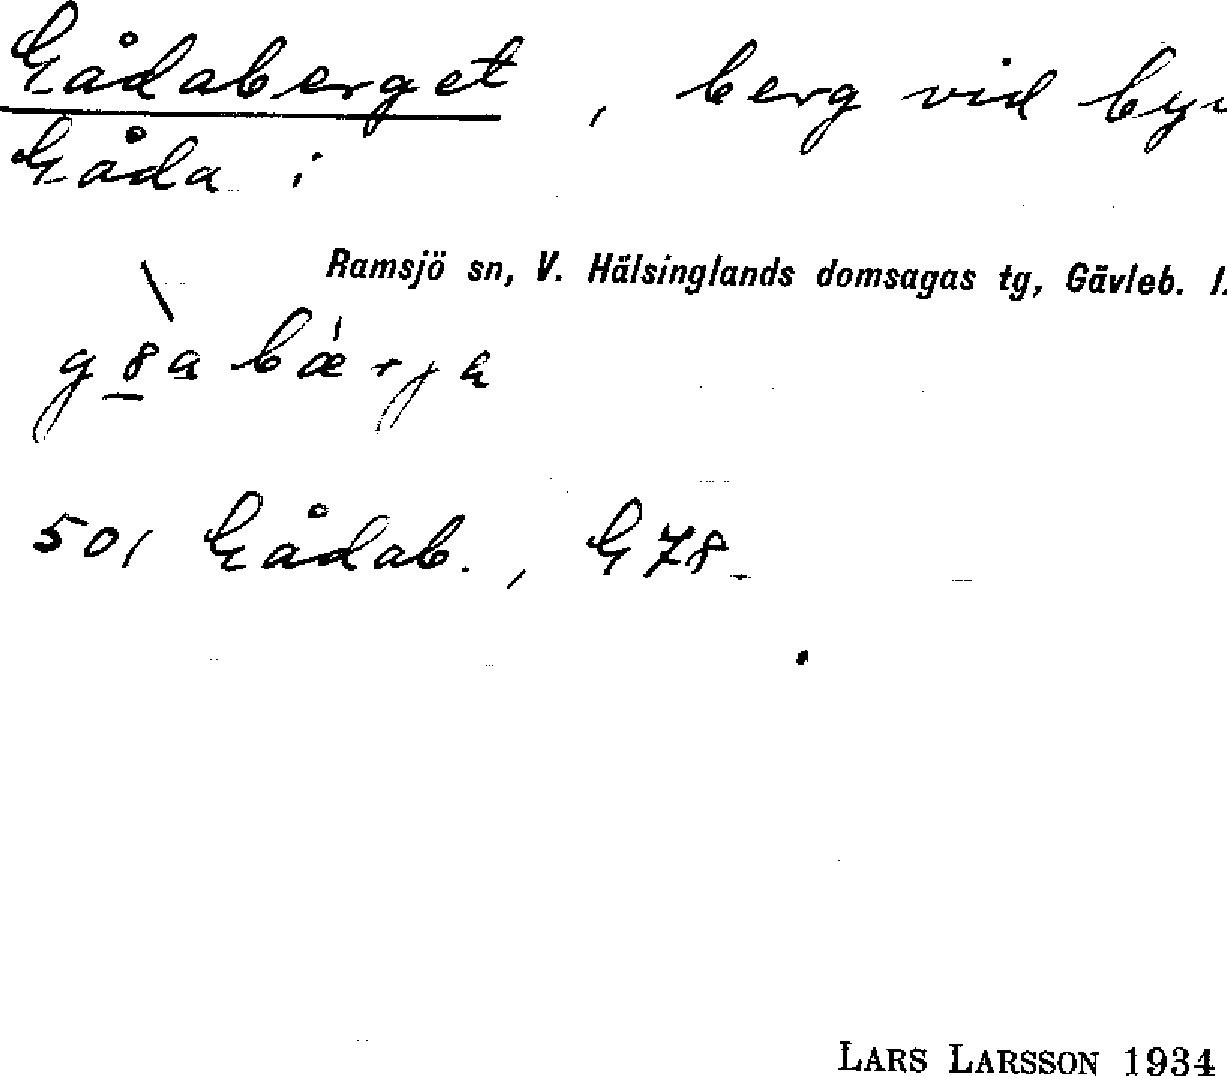 Gådaberget, berg vid byn
Gåda i
Ramsjö sn, V. Hälsinglands domsagas tg, Gävleb. l.
501 Gådab., G78.
LARS LARSSON 1934